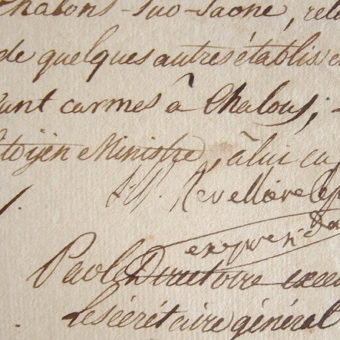 Chalons-sur-Saone, rele
de quelques autres établis
carmes à Chalons;
Citoyen Ministre, à lui
Revellière
Par le Directoire exec
Le secrétaire général